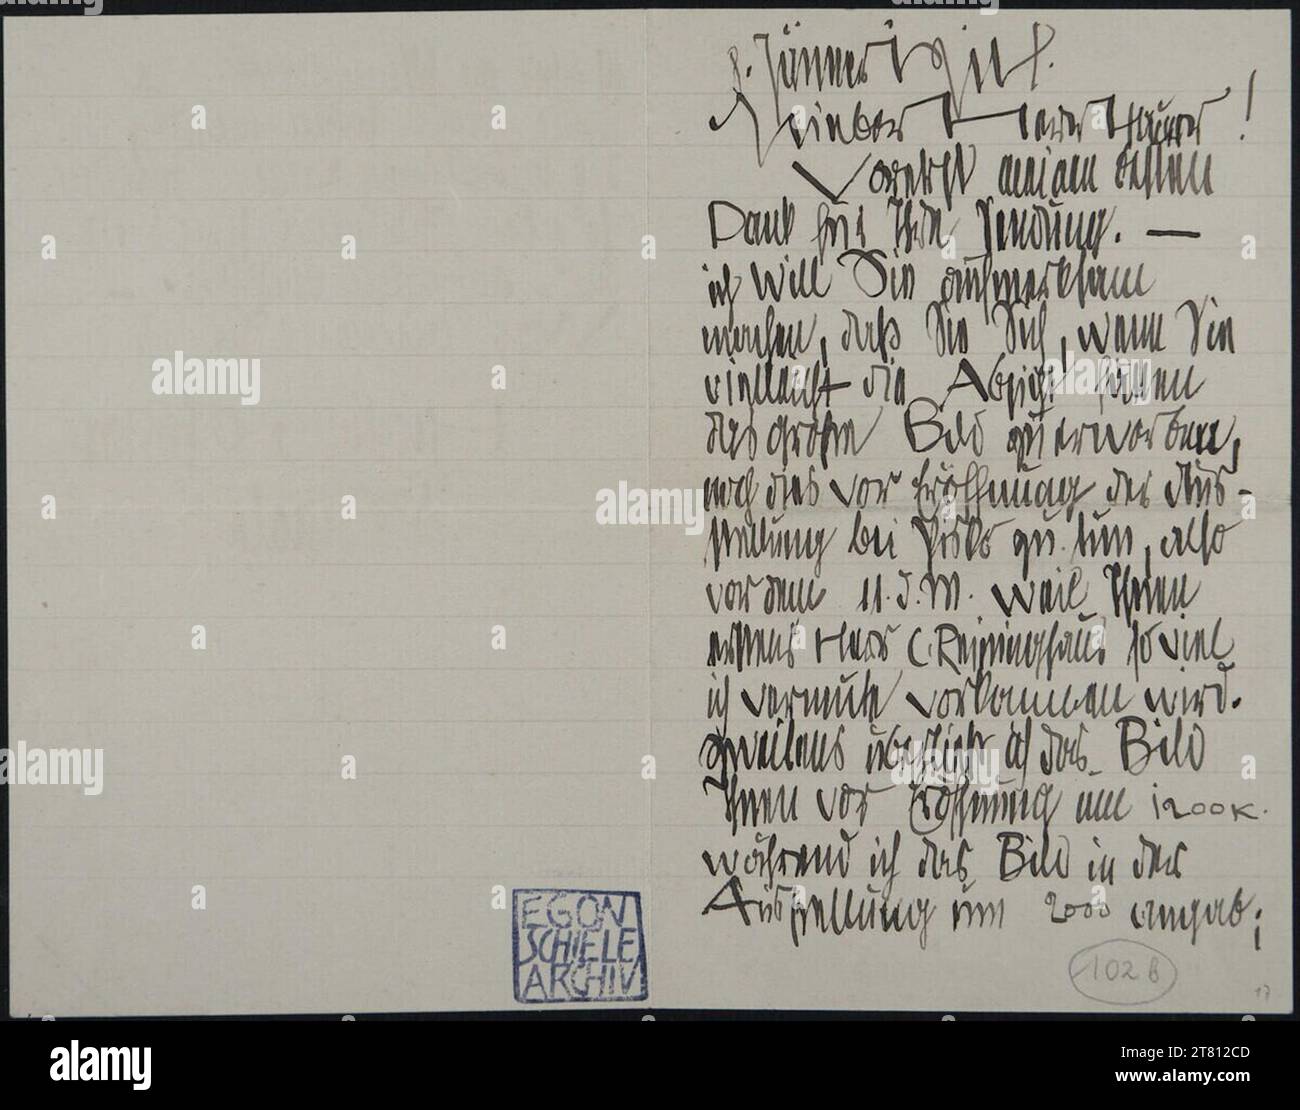 8. Jänner 1911.
Lieber Herr Hauer!
Vorerst meinen besten
Dank für Ihre Sendung. —
ich will Sie aufmerksam
machen, daß Sie Sich, wenn Sie
vielleicht die Absicht hätten
das große Bild zu erwerben,
noch dies vor Eröffnung der Aus-
stellung bei Pisko zu tun, also
vor dem 11. d. M. weil Ihnen
erstens Herr C. Reininghaus so viel
ich vermute vorkommen wird.
zweitens überließ ich das Bild
Ihnen vor Eröffnung um 1200 K.
während ich das Bild in der
Ausstellung um 2000 angab;
EGON
SCHIELE
ARCHIV
102 B
17
alamy
alamy
Image ID: 2T812CD
www.alamy.com